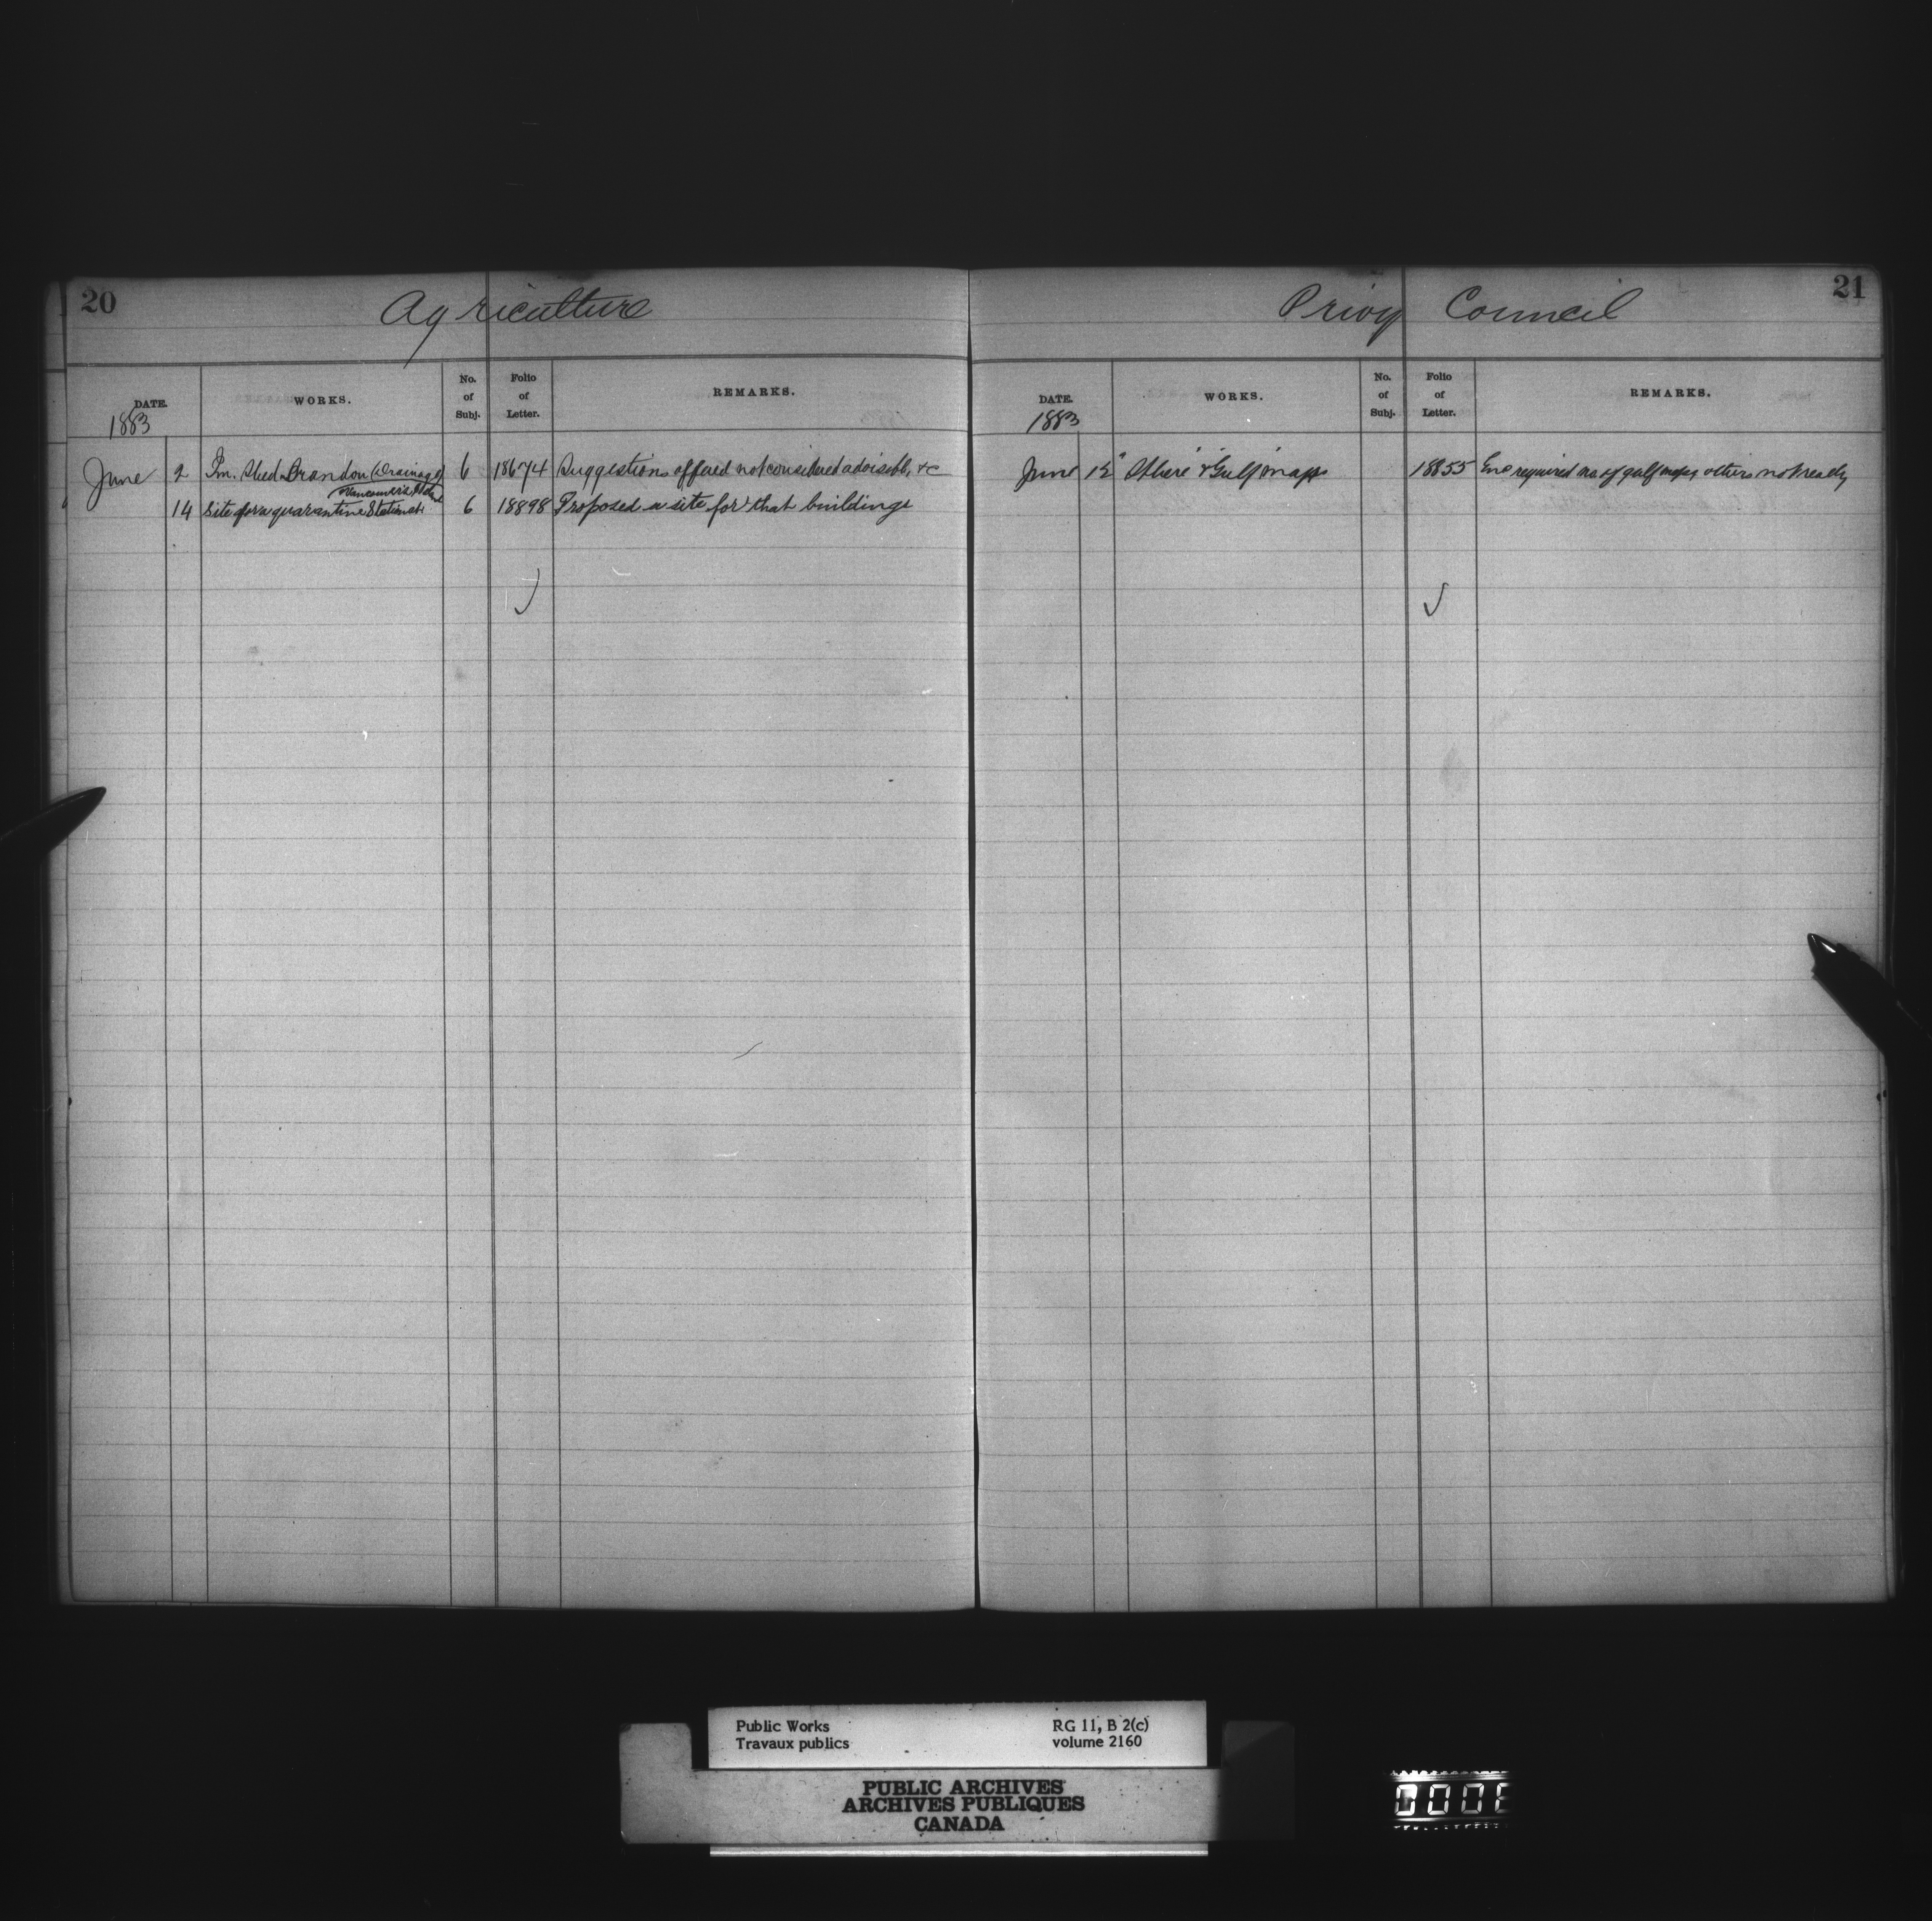 20
Agriculture
DATE. WORKS. No. of Subj. Folio of Letter. REMARKS.
1883
June 2 Im. Shed Brandon (Drainage) 6 18674 Suggestions offered not considered advisable, &c
Vancouver's Island
14 Site for a quarantine Station at 6 18898 Proposed a site for that buildings
21
Privy Council
DATE. WORKS. No. of Subj. Folio of Letter. REMARKS.
1883
June 12 & "Gulf" maps 18855 Enc required no. of gulf maps, others not ready
Public Works
Travaux publics
RG 11, B 2(c)
volume 2160
PUBLIC ARCHIVES
ARCHIVES PUBLIQUES
CANADA